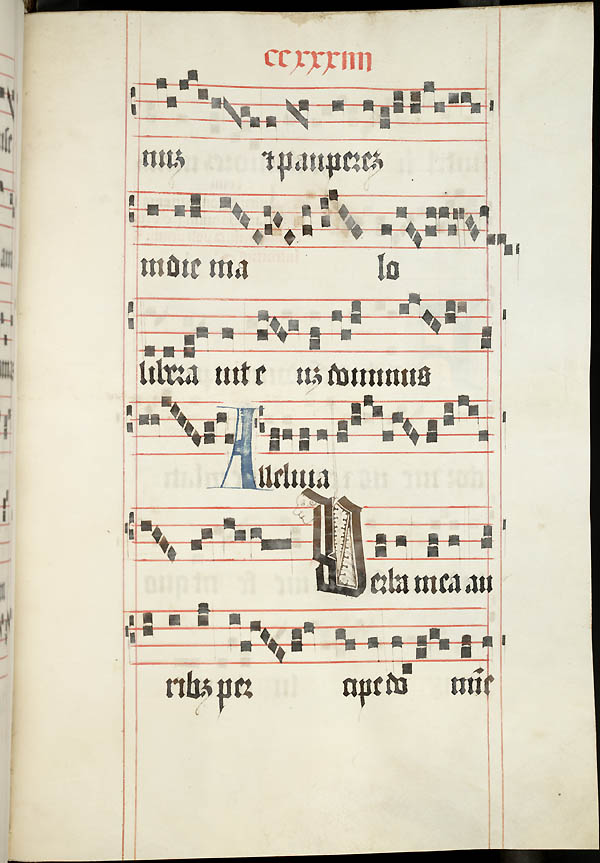 ccxxxiiii
nuz ⁊ pauperez
in die ma la
libera uit e uz dominus
Alleluia
Verba mea au
ribz per cipe do mīe